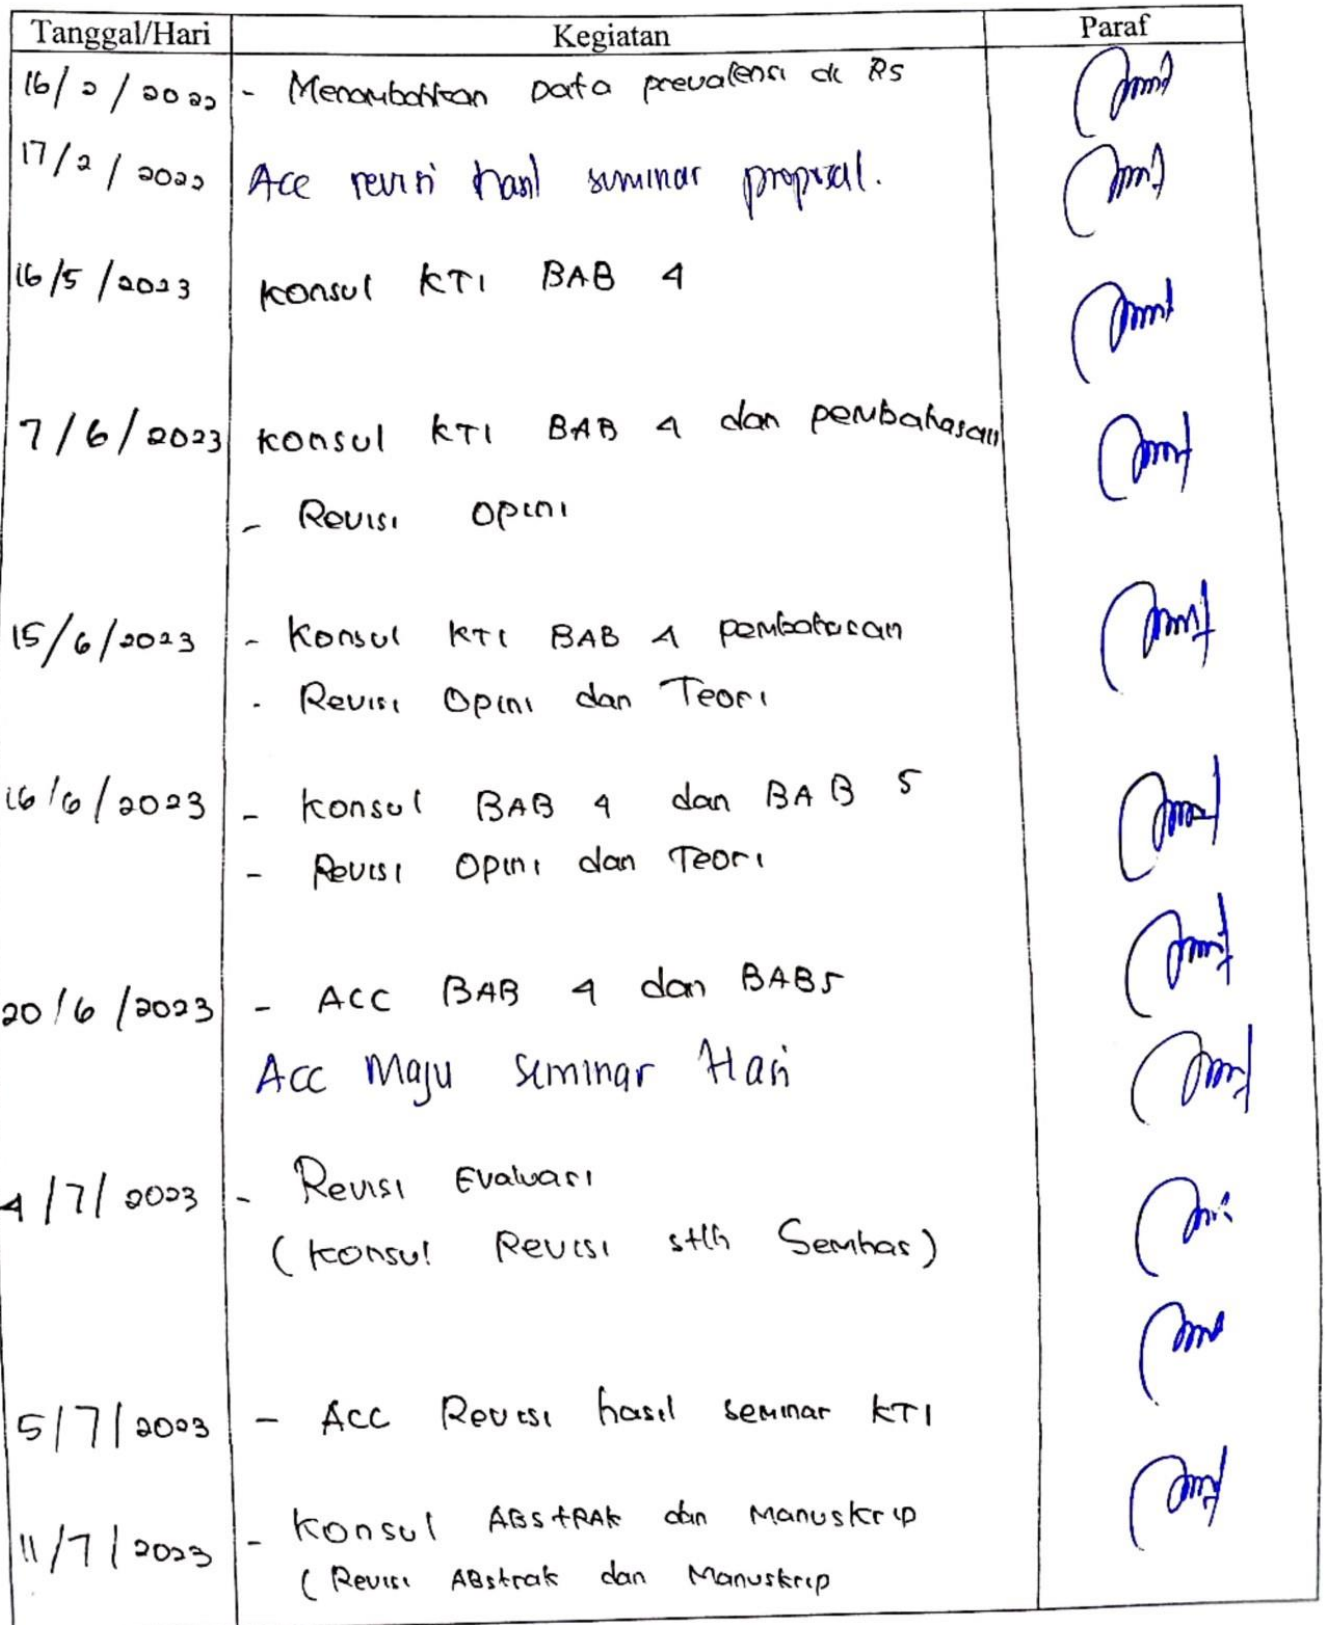 Tanggal/Hari Kegiatan Paraf
16/2/2022 - Menambahkan Data prevalensi di RS
17/2/2022 Acc revisi hasil seminar proposal.
16/5/2023 Konsul KTI BAB 4
7/6/2023 Konsul KTI BAB 4 dan pembahasan
- Revisi Opini
15/6/2023 - Konsul KTI BAB 4 pembahasan
- Revisi Opini dan Teori
16/6/2023 - Konsul BAB 4 dan BAB 5
- Revisi Opini dan Teori
20/6/2023 - ACC BAB 4 dan BAB 5
Acc Maju Seminar Hasil
4/7/2023 - Revisi Evaluasi
(Konsul Revisi stlh Semhas)
5/7/2023 - Acc Revisi hasil seminar KTI
11/7/2023 - Konsul ABStRAk dan Manuskrip
(Revisi ABstrak dan Manuskrip